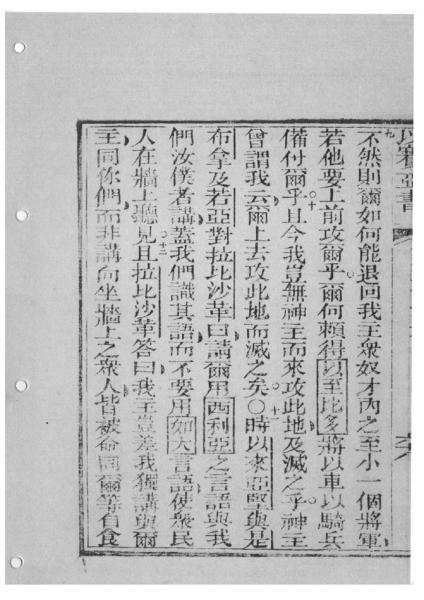 以賽亞書
九
不然則爾如何能退回我主衆奴才內之至小一個將軍
若他要上前攻爾乎爾何賴得以至比多將以車以騎兵
備付爾乎○十且今我豈無神主而來攻此地及滅之乎神主
曾謂我云爾上去攻此地而滅之矣○○十一時以來亞堅與是
布拿及若亞對拉比沙革曰請爾用西利亞之言語與我
們汝僕者講蓋我們識其語而不要用如大言語使衆民
人在牆上聽見○十二且拉比沙革答曰我主豈差我獨講與爾
主同你們而非講向坐牆上之衆人皆被命同爾等自食